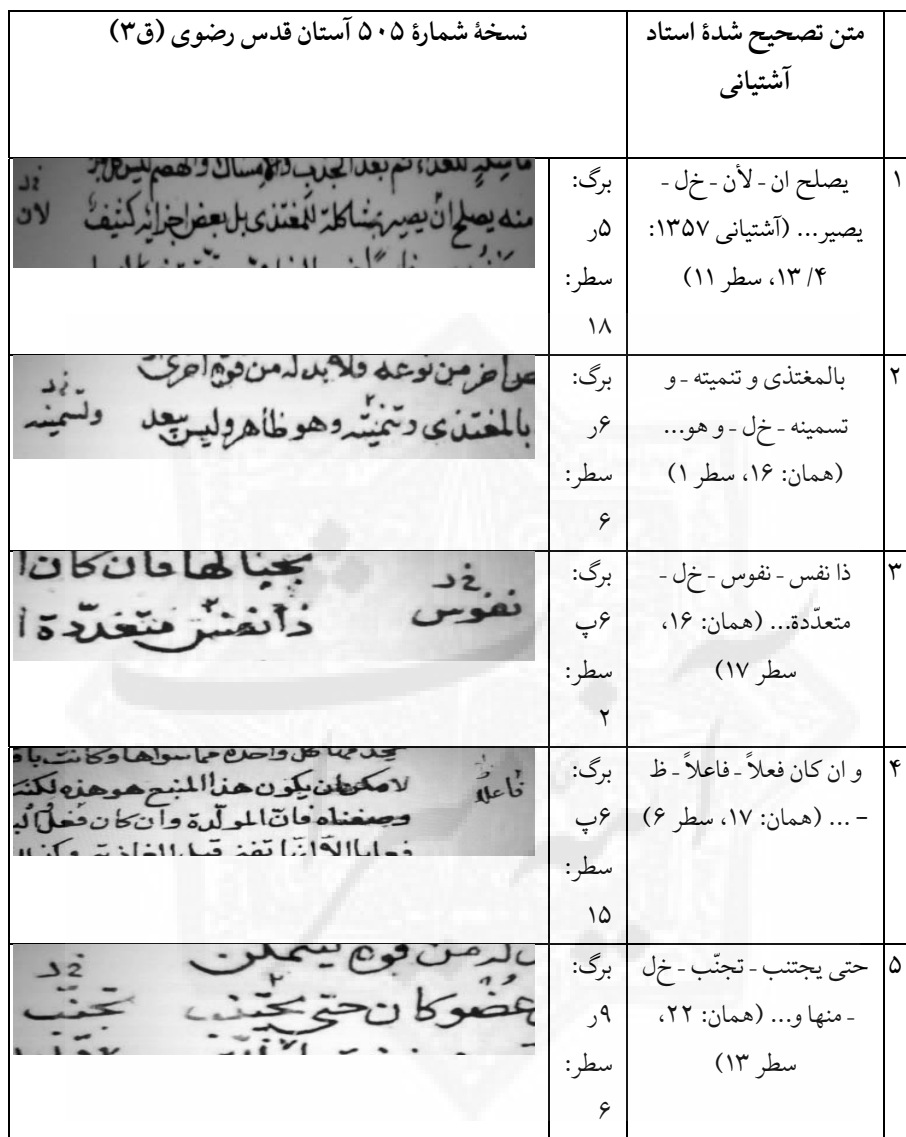 متن تصحیح شدهٔ استاد
آشتیانی
نسخهٔ شمارهٔ ۵۰۵ آستان قدس رضوی (ق۳)
۱
یصلح ان - لأن - خ‌ل -
یصیر... (آشتیانی ۱۳۵۷:
۴/ ۱۳، سطر ۱۱)
برگ:
۵ر
سطر:
۱۸
للغذاء ثم بعد الجذب والامساك والهضم ليس كل جزء
منه يصلح ان يصير مشاكلة للمغتذى بل بعض اجزائه كثيف
لان
۲
بالمغتذی و تنمیته - و
تسمینه - خ‌ل - و هو...
(همان: ۱۶، سطر ۱)
برگ:
۶ر
سطر:
۶
اخر من نوعه فلا بد له من قوة اخرى
بالمغتذى وتنميته وهو ظاهر وليس يبعد
وتسمينه
۳
ذا نفس - نفوس - خ‌ل -
متعدّدة... (همان: ۱۶،
سطر ۱۷)
برگ:
۶پ
سطر:
۲
لها فان كان
ذا نفس متعدّدة
نفوس
۴
و ان کان فعلاً - فاعلاً - ظ
- ... (همان: ۱۷، سطر ۶)
برگ:
۶پ
سطر:
۱۵
كل واحدة مما سواها وكانت
لامكن ان يكون هذا المنبع هو هذه لكنه
وضعناه فان المولّدة وان كان فعلا
فاعلا
۵
حتی یجتنب - تجنّب - خ‌ل
- منها و... (همان: ۲۲،
سطر ۱۳)
برگ:
۹ر
سطر:
۶
له من قوة
عضو كان حتى يجتنب
تجنّب